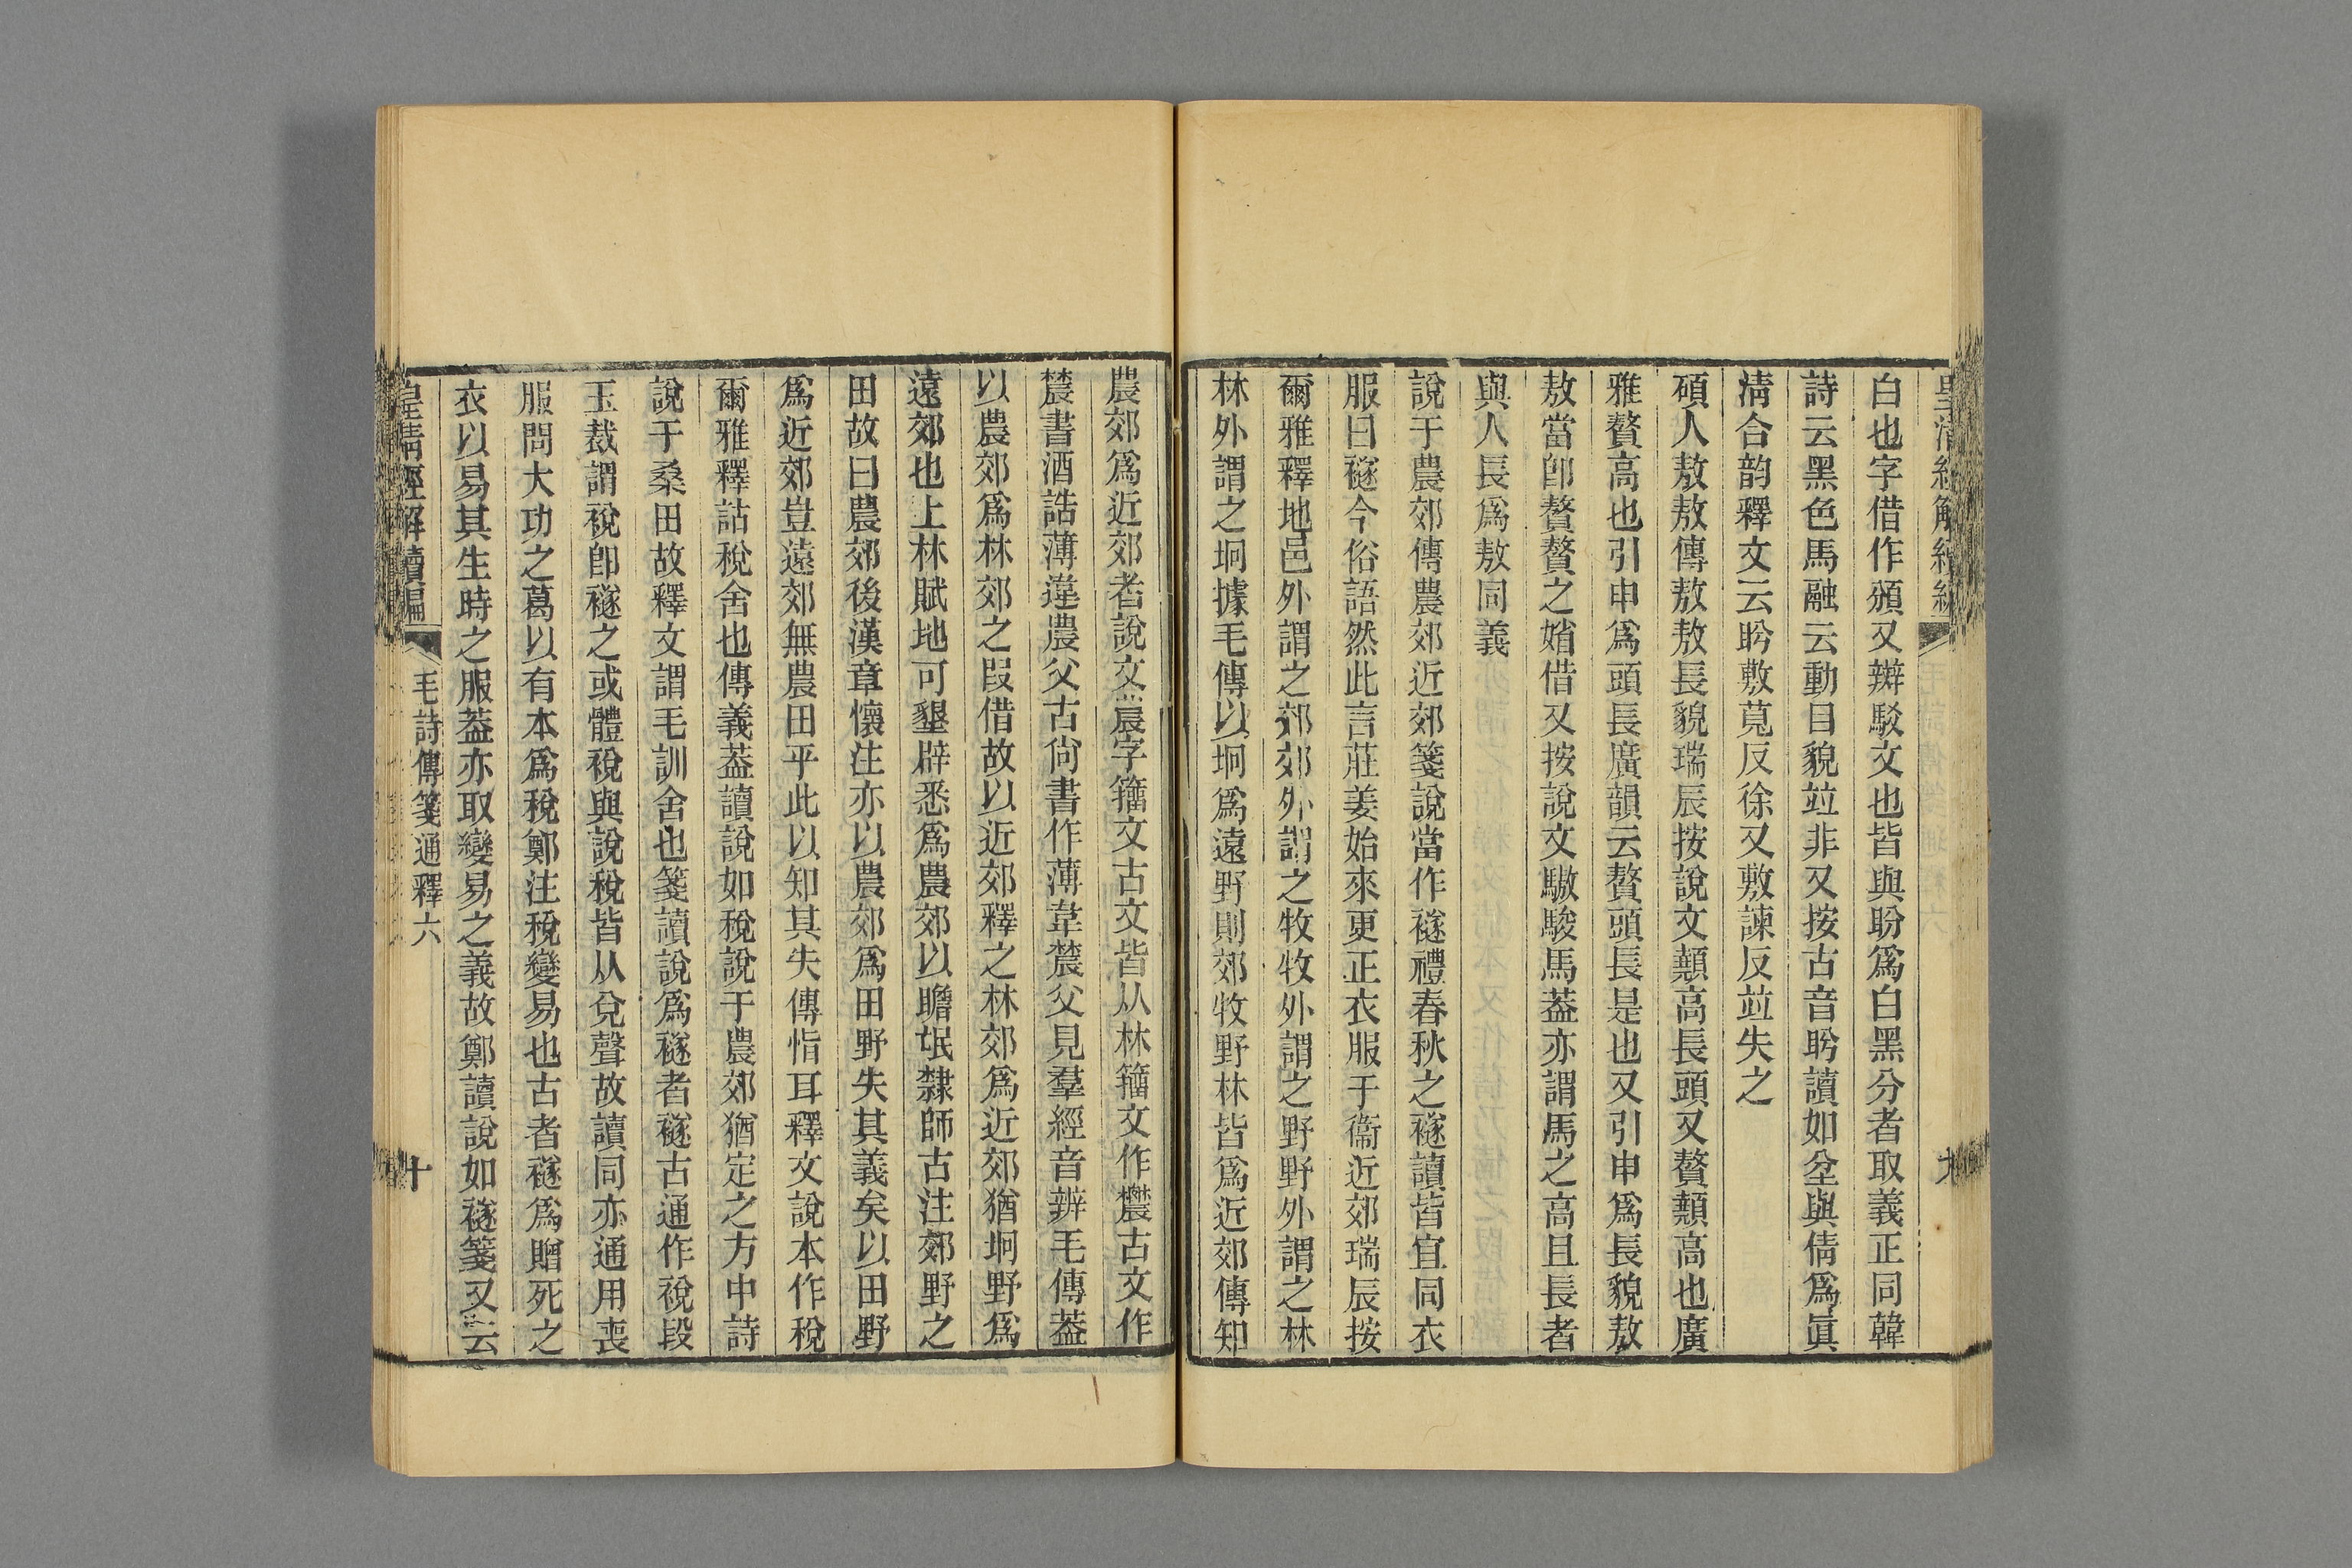 白也字借作頒又辨駁文也皆與盼爲白黑分者取義正同韓
詩云黑色馬融云動目貌竝非又按古音盼讀如坌與倩爲眞
淸合韵釋文云盻敷莧反徐又敷諫反竝失之
碩人敖敖傳敖敖長貌瑞辰按說文顤高長頭又贅顤高也廣
雅贅高也引申爲頭長廣韻云贅頭長是也又引申爲長貌敖
敖當卽贅贅之㛮借又按說文驐駿馬葢亦謂馬之高且長者
與人長爲敖同義
說于農郊傳農郊近郊箋說當作襚禮春秋之襚讀皆宜同衣
服曰襚今俗語然此言莊姜始來更正衣服于衞近郊瑞辰按
爾雅釋地邑外謂之郊郊外謂之牧牧外謂之野野外謂之林
林外謂之坰據毛傳以坰爲遠野則郊牧野林皆爲近郊傳知
農郊爲近郊者說文農字籒文古文皆从林籒文作䢉古文作
莀書酒誥薄違農父古尙書作薄韋莀父見羣經音辨毛傳葢
以農郊爲林郊之叚借故以近郊釋之林郊爲近郊猶坰野爲
遠郊也上林賦地可墾辟悉爲農郊以贍氓隸師古注郊野之
田故曰農郊後漢章懷注亦以農郊爲田野失其義矣以田野
爲近郊豈遠郊無農田乎此以知其失傳恉耳釋文說本作稅
爾雅釋詁稅舍也傳義葢讀說如稅說于農郊猶定之方中詩
說于桑田故釋文謂毛訓舍也箋讀說爲襚者襚古通作祱段
玉裁謂祱卽襚之或體稅與說稅皆从兌聲故讀同亦通用喪
服問大功之葛以有本爲稅鄭注稅變易也古者襚爲贈死之
衣以易其生時之服葢亦取變易之義故鄭讀說如襚箋又云
皇淸經解續編
毛詩傳箋通釋六
十